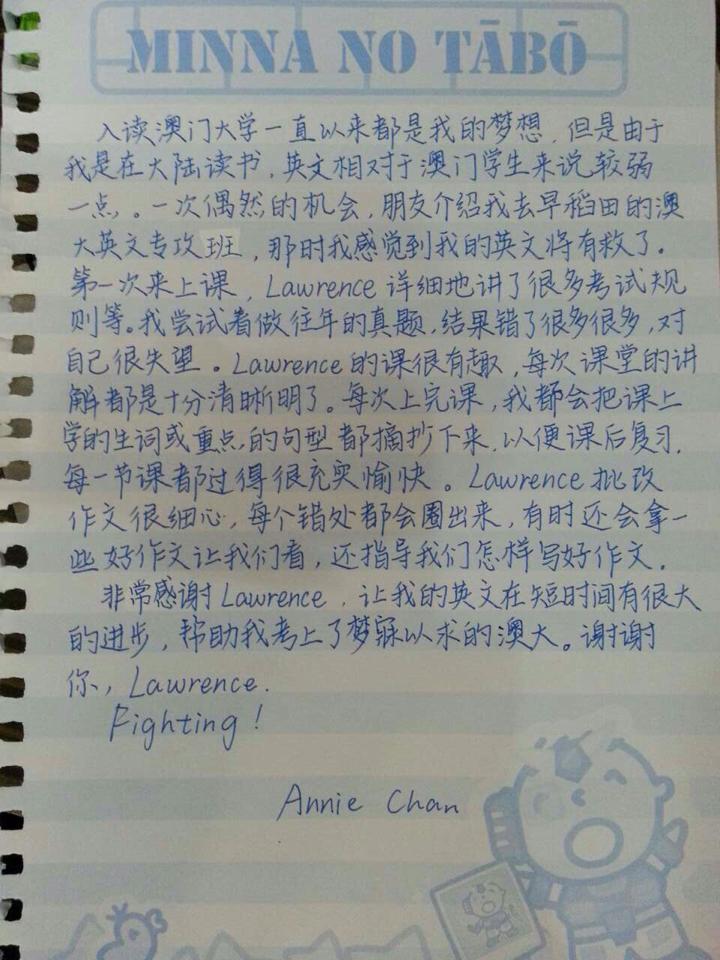 MINNA NO TĀBŌ
入读澳门大学一直以来都是我的梦想，但是由于
我是在大陆读书，英文相对于澳门学生来说较弱
一点。一次偶然的机会，朋友介绍我去早稻田的澳
大英文专攻班，那时我感觉到我的英文将有救了。
第一次来上课，Lawrence 详细地讲了很多考试规
则等。我尝试着做往年的真题，结果错了很多很多，对
自己很失望。Lawrence的课很有趣，每次课堂的讲
解都是十分清晰明了。每次上完课，我都会把课上
学的生词或重点的句型都摘抄下来，以便课后复习，
每一节课都过得很充实愉快。Lawrence批改
作文很细心，每个错处都会圈出来，有时还会拿一
些好作文让我们看，还指导我们怎样写好作文。
非常感谢Lawrence，让我的英文在短时间有很大
的进步，帮助我考上了梦寐以求的澳大。谢谢
你，Lawrence.
Fighting!
Annie Chan